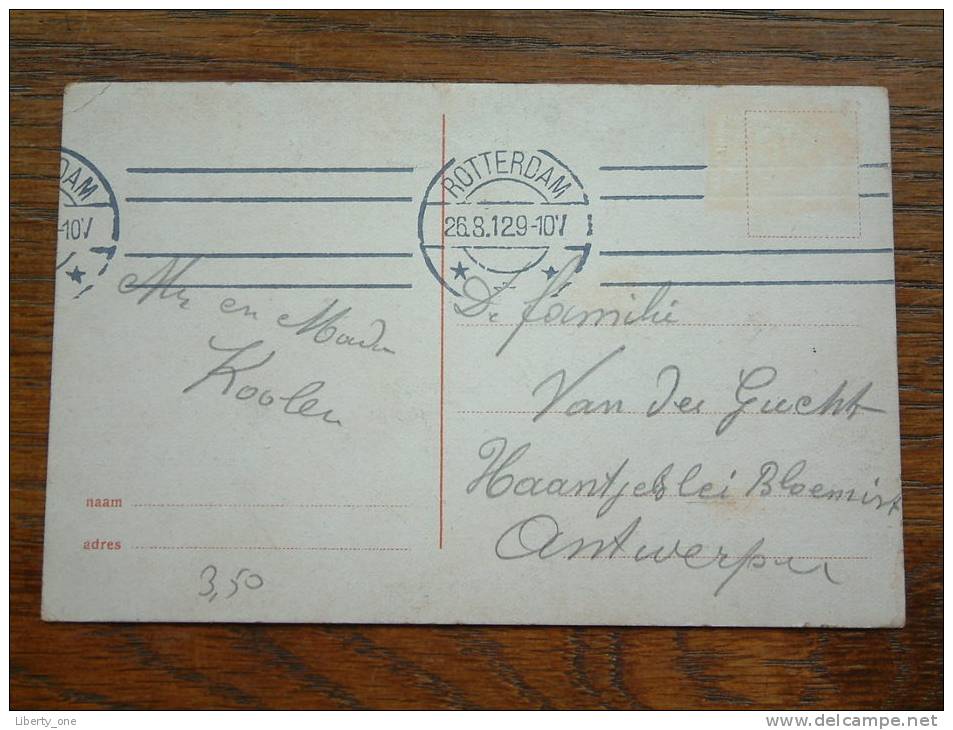 DAM
-10V
ROTTERDAM
26.8.12 9-10V
Mr en Madm
Koolen
De familie
Van der Gucht
Haantjeslei Bloemist
Antwerpen
naam
adres
3,50
Liberty_one
www.delcampe.net